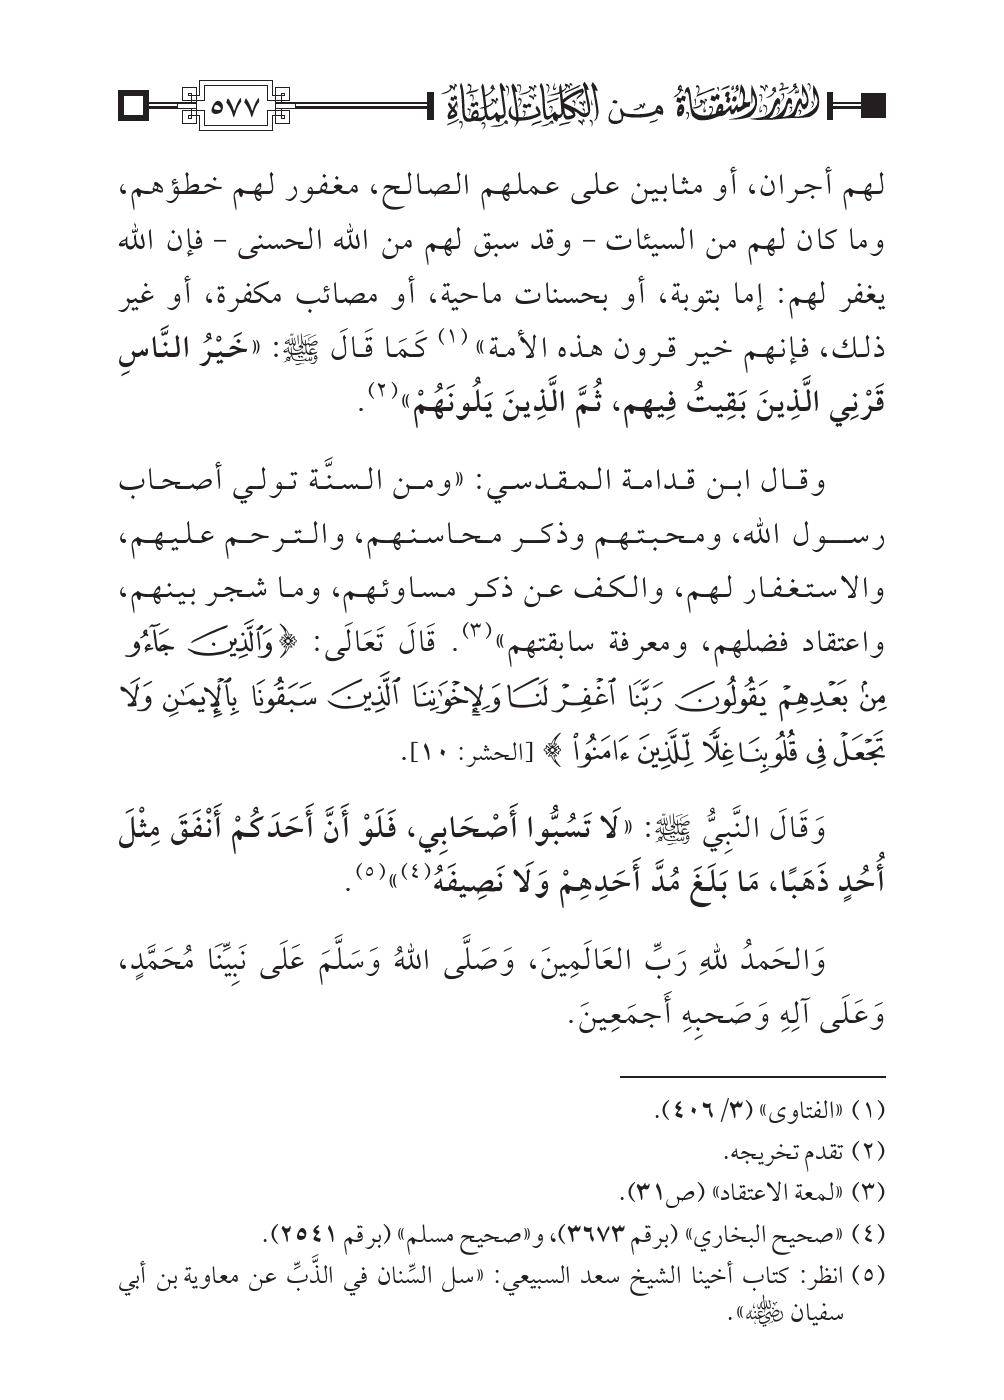 الدُّرَرُ المُنْتَقَاةُ مِنَ الكَلِمَاتِ المُلْقَاةِ
٥٧٧
لهم أجران، أو مثابين على عملهم الصالح، مغفور لهم خطؤهم،
وما كان لهم من السيئات – وقد سبق لهم من الله الحسنى – فإن الله
يغفر لهم: إما بتوبة، أو بحسنات ماحية، أو مصائب مكفرة، أو غير
ذلك، فإنهم خير قرون هذه الأمة»(١) كَمَا قَالَ ﷺ: «خَيْرُ النَّاسِ
قَرْنِي الَّذِينَ بَقِيتُ فِيهم، ثُمَّ الَّذِينَ يَلُونَهُمْ»(٢).
وقال ابن قدامة المقدسي: «ومن السنَّة تولي أصحاب
رسول الله، ومحبتهم وذكر محاسنهم، والترحم عليهم،
والاستغفار لهم، والكف عن ذكر مساوئهم، وما شجر بينهم،
واعتقاد فضلهم، ومعرفة سابقتهم»(٣). قَالَ تَعَالَى: ﴿وَٱلَّذِينَ جَآءُو
مِنۢ بَعۡدِهِمۡ يَقُولُونَ رَبَّنَا ٱغۡفِرۡ لَنَا وَلِإِخۡوَٰنِنَا ٱلَّذِينَ سَبَقُونَا بِٱلۡإِيمَٰنِ وَلَا
تَجۡعَلۡ فِي قُلُوبِنَا غِلّٗا لِّلَّذِينَ ءَامَنُواْ ﴾ [الحشر: ١٠].
وَقَالَ النَّبِيُّ ﷺ: «لَا تَسُبُّوا أَصْحَابِي، فَلَوْ أَنَّ أَحَدَكُمْ أَنْفَقَ مِثْلَ
أُحُدٍ ذَهَبًا، مَا بَلَغَ مُدَّ أَحَدِهِمْ وَلَا نَصِيفَهُ(٤)»(٥).
وَالحَمدُ للهِ رَبِّ العَالَمِينَ، وَصَلَّى اللهُ وَسَلَّمَ عَلَى نَبِيِّنَا مُحَمَّدٍ،
وَعَلَى آلِهِ وَصَحبِهِ أَجمَعِينَ.
(١) «الفتاوى» (٣/ ٤٠٦).
(٢) تقدم تخريجه.
(٣) «لمعة الاعتقاد» (ص٣١).
(٤) «صحيح البخاري» (برقم ٣٦٧٣)، و«صحيح مسلم» (برقم ٢٥٤١).
(٥) انظر: كتاب أخينا الشيخ سعد السبيعي: «سل السِّنان في الذَّبِّ عن معاوية بن أبي
سفيان رضي الله عنه».